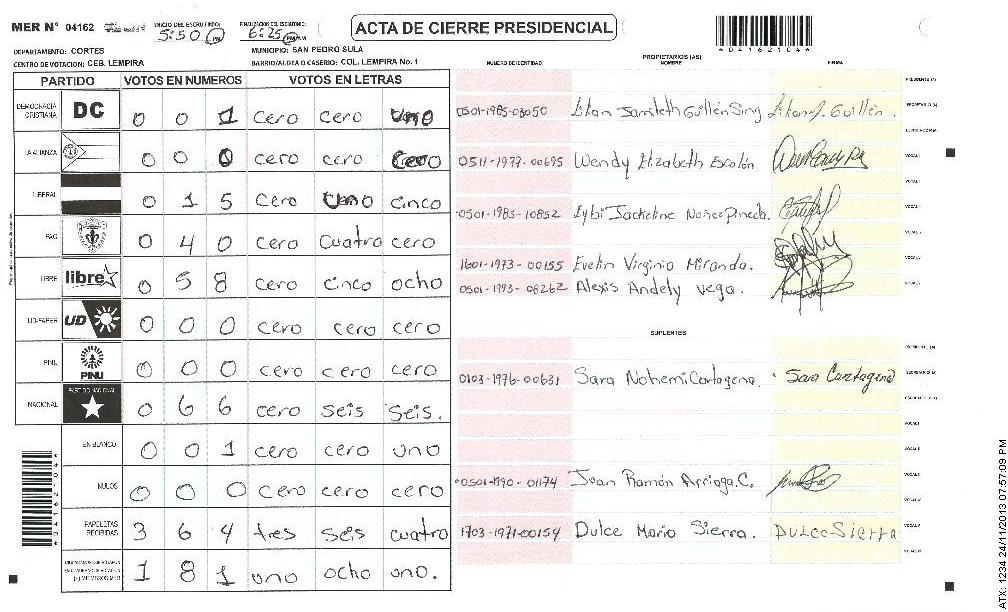 MER Nº 04162 INICIO DEL ESCRUTINIO: 5:50 PM FINALIZACION DEL ESCRUTINIO: 6:25 PM ACTA DE CIERRE PRESIDENCIAL
DEPARTAMENTO: CORTES MUNICIPIO: SAN PEDRO SULA
CENTRO DE VOTACION: CEB. LEMPIRA BARRIO/ALDEA O CASERIO: COL. LEMPIRA No. 1
PARTIDO VOTOS EN NUMEROS VOTOS EN LETRAS
DEMOCRACIA CRISTIANA DC 0 0 1 cero cero uno
LA ALIANZA 0 0 0 cero cero cero
LIBERAL 0 1 5 cero uno cinco
0 4 0 cero cuatro cero
LIBRE libre 0 5 8 cero cinco ocho
UD-FAPER UD 0 0 0 cero cero cero
PINU PINU 0 0 0 cero cero cero
NACIONAL PARTIDO NACIONAL 0 6 6 cero seis seis.
EN BLANCO 0 0 1 cero cero uno
NULOS 0 0 0 cero cero cero
PAPELETAS RECIBIDAS 3 6 4 tres seis cuatro
1 8 1 uno ocho uno.
NUMERO DE IDENTIDAD PROPIETARIOS (AS) NOMBRE FIRMA
0501-1985-03050 Lilian Jamileth Guillén Sing
0511-1977-00695 Wendy Elizabeth Escolón
0501-1985-10852 Eybi Jackeline Nuñez Pineda.
1601-1973-00155 Evelin Virginia Miranda.
0501-1993-08262 Alexis Andely Vega.
SUPLENTES
0103-1976-00631 Sara Nohemi Cartagena. Sara Cartagena
0501-1990-01174 Juan Ramón Arriaga C.
1703-1971-00154 Dulce Maria Sierra. Dulce Sierra
*041621044*
ATX: 1234 24/11/2013 07:57:09 PM